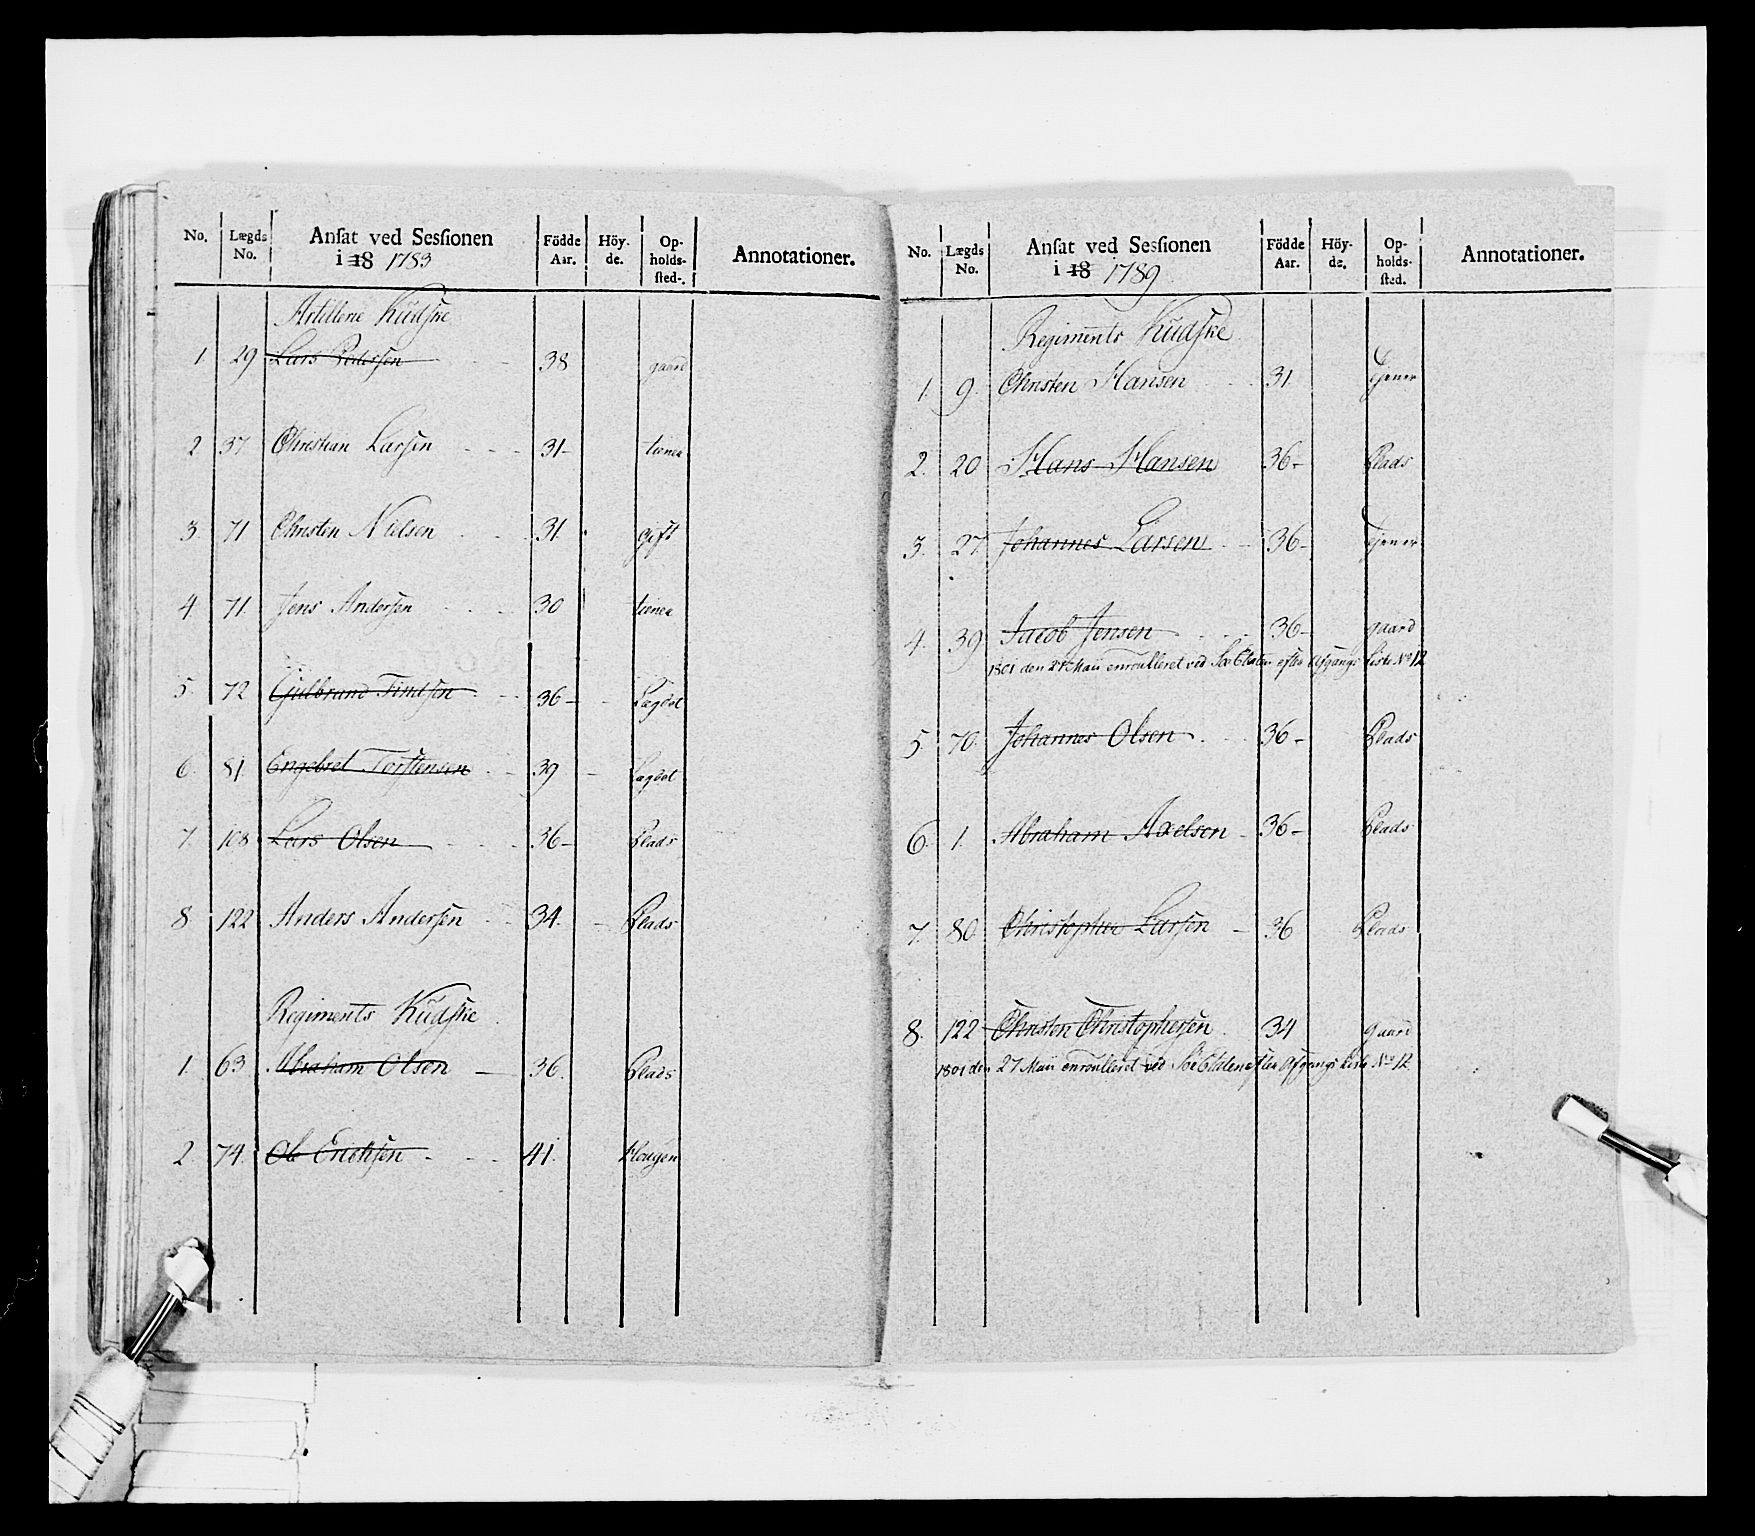 No. Lægds No. Ansat ved Sessionen i 18 1783 Födde Aar. Höyde. Opholdssted. Annotationer.
Artillerie Kudske
1 29 Lars Pedersen 38 gaard
2 37 Christian Larsen 31 tiener
3. 71 Christen Nielsen 31. gift
4 71 Jens Andersen 30 tiener
5 72 Gulbrand Findsen 36 Lægdet
6. 81 Engebret Torstensen 39 Lægdet
7. 108 Lars Olsen 36 Plads
8 122 Anders Andersen 34. Plads
Regiments Kudske
1. 63 Abraham Olsen 36. Plads
2 74. Ole Erichsen 41. Hougen
No. Lægds No. Ansat ved Sessionen i 18 1789 Födde Aar. Höyde. Opholdssted. Annotationer.
Regiments Kudske
1. 9. Christen Hansen 31. tjener
2. 20 Hans Hansen 36 Plads
3. 27 Johannes Larsen 36 tjener
4. 39 Jacob Jensen 36 gaard
1801 den 27 Maii enroulleret ved Søe Etaten efter Afgangs Liste No 12
5. 70. Johannes Olsen 36 Plads
6. 1. Abraham Axelsen 36 Plads
7. 80 Christopher Larsen 36 Plads
8. 122 Christen Christophersen 34 gaard
1801 den 27 Maii enroulleret ved Søe Etaten efter Afgangs Liste No 12